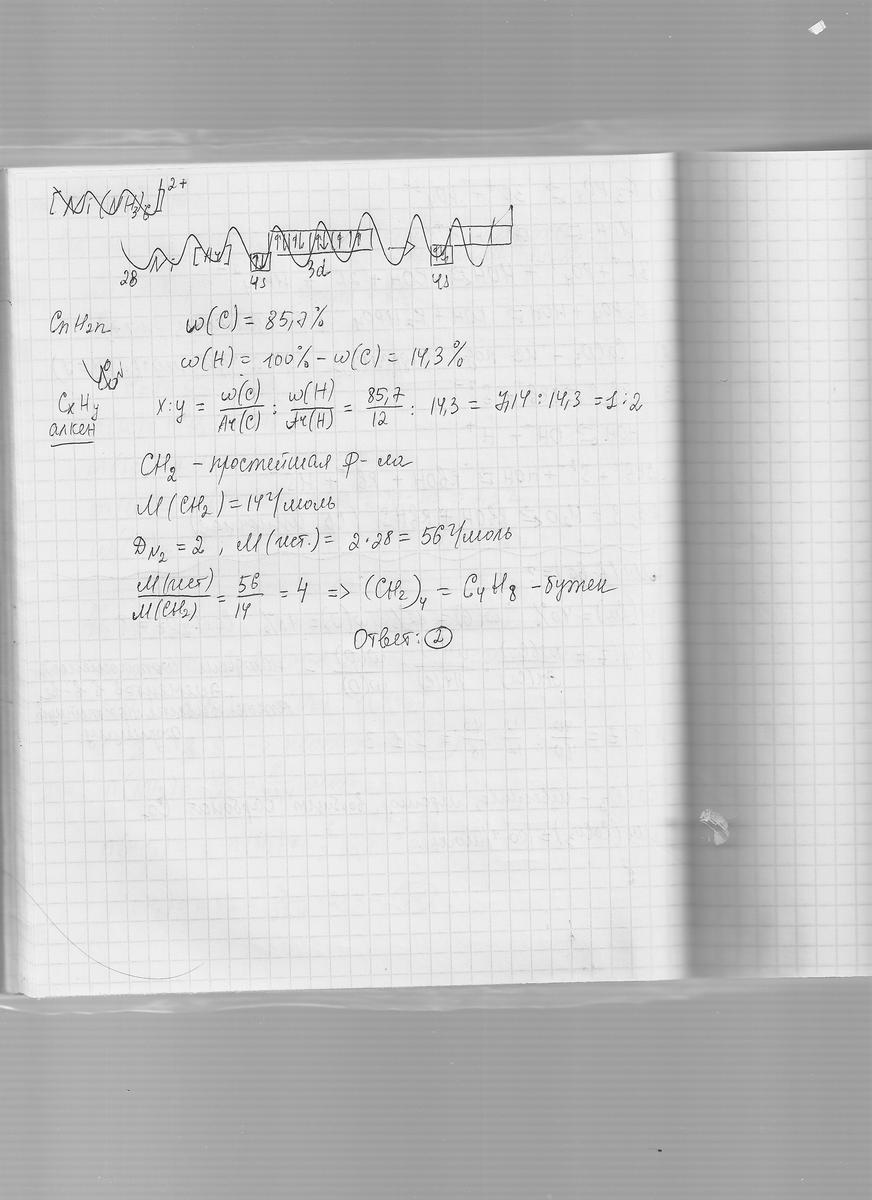 [Ni(NH3)6]2+
28 Ni [Ar] 4s 3d 4s
CnH2n ω(C) = 85,7%
ω(H) = 100% - ω(C) = 14,3%
CxHy x:y = ω(C)/Ar(C) : ω(H)/Ar(H) = 85,7/12 : 14,3 = 7,14 : 14,3 = 1:2
алкен
CH2 - простейшая ф-ла
M(CH2) = 14 г/моль
DN2 = 2, M(ист.) = 2·28 = 56 г/моль
M(ист)/M(CH2) = 56/14 = 4 => (CH2)4 = C4H8 - бутен
Ответ: 2